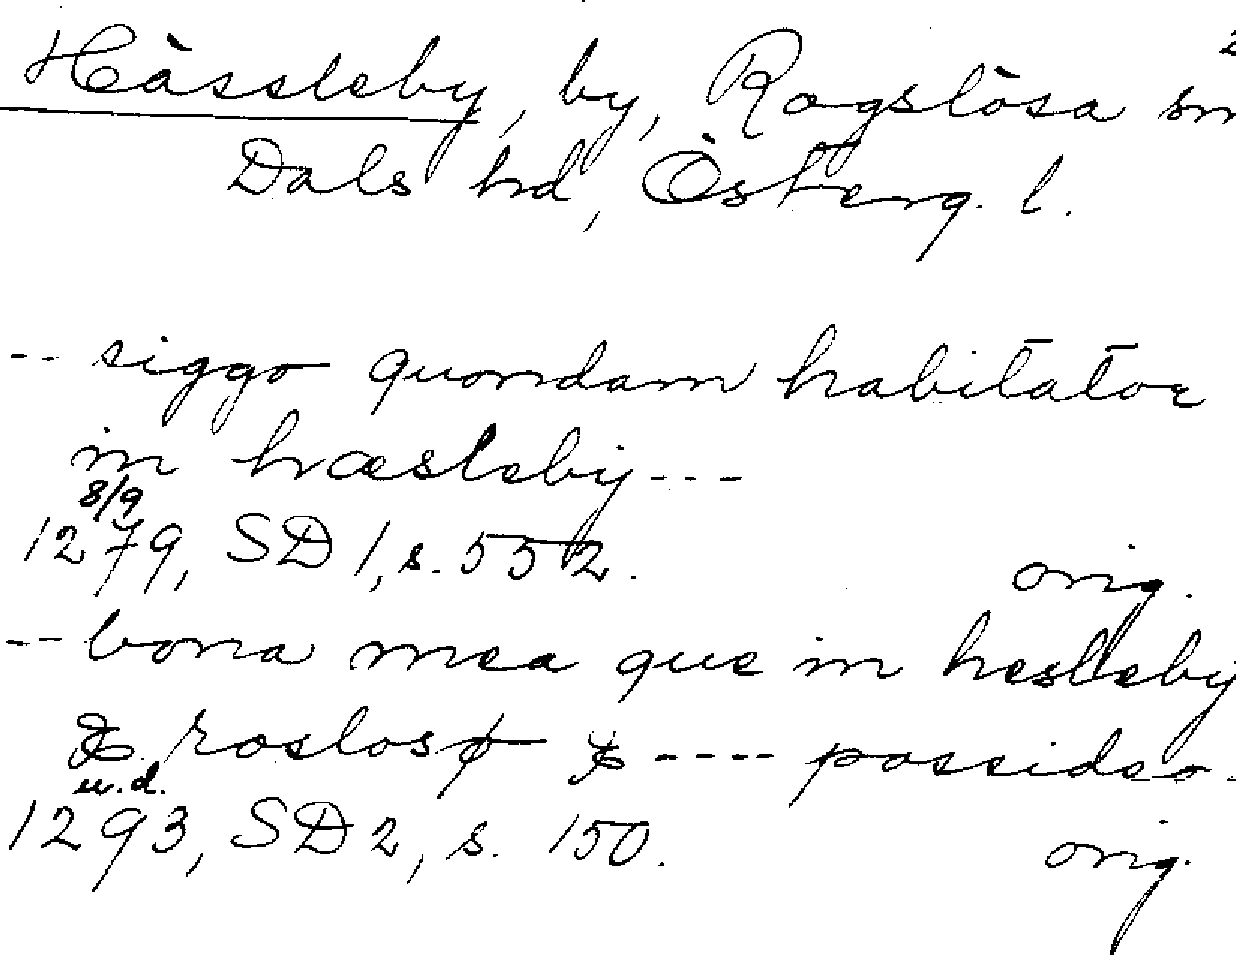 Hässleby, by, Rogslösa sn
Dals hd, Österg. l.
-- siggo quondam habitator
in hæsleby---
8/9
1279, SD 1, s. 552. orig.
-- bona mea que in hesleby
& roslosø & ---- possideo-
u.d.
1293, SD 2, s. 150. orig.